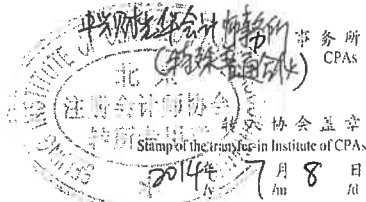 中兴财光华会计师事务所 事务所
CPAs
(特殊普通合伙)
北京
注册会计师协会
转所专用章
转入协会盖章
Stamp of the transfer-in Institute of CPAs
2014年 7月 8日
/y /m /d